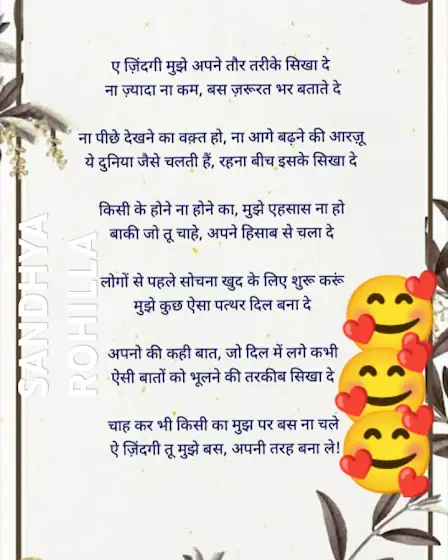 ए ज़िंदगी मुझे अपने तौर तरीके सिखा दे
ना ज़्यादा ना कम, बस ज़रूरत भर बताते दे
ना पीछे देखने का वक़्त हो, ना आगे बढ़ने की आरज़ू
ये दुनिया जैसे चलती हैं, रहना बीच इसके सिखा दे
किसी के होने ना होने का, मुझे एहसास ना हो
बाकी जो तू चाहे, अपने हिसाब से चला दे
लोगों से पहले सोचना खुद के लिए शुरू करूं
मुझे कुछ ऐसा पत्थर दिल बना दे
अपनो की कही बात, जो दिल में लगे कभी
ऐसी बातों को भूलने की तरकीब सिखा दे
चाह कर भी किसी का मुझ पर बस ना चले
ऐ ज़िंदगी तू मुझे बस, अपनी तरह बना ले!
SANDHYA
ROHILLA